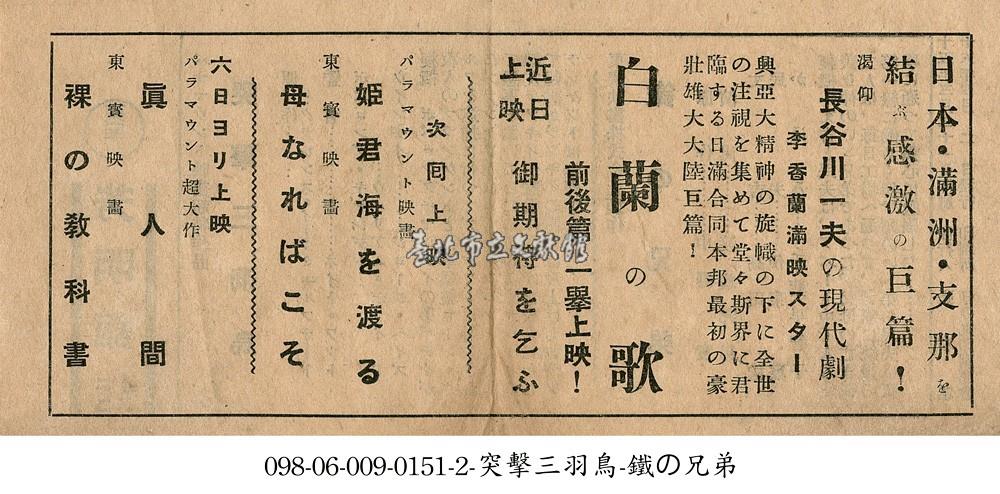 日本・滿洲・支那を
結ぶ感激の巨篇！
渇仰
長谷川一夫の現代劇
李香蘭滿映スター
興亞大精神の旋幟の下に全世
の注視を集めて堂々斯界に君
臨する日滿合同本邦最初の豪
壯雄大大陸巨篇！
白蘭の歌
前後篇一擧上映！
近日
上映
御期待を乞ふ
次回上映
パラマウント映畫
姫君海を渡る
東寳映畫
母なればこそ
六日ヨリ上映
パラマウント超大作
眞人間
東寳映畫
裸の敎科書
臺北市立文獻館
098-06-009-0151-2-突擊三羽鳥-鐵の兄弟